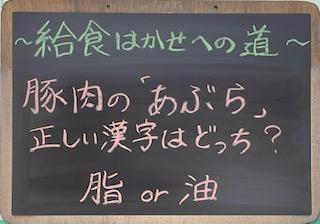 ～給食はかせへの道～
豚肉の「あぶら」
正しい漢字はどっち？
脂 or 油